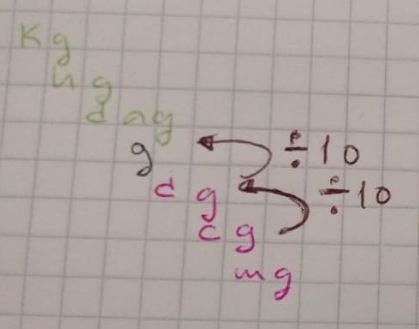 Kg
hg
dag
g ÷10
dg ÷10
cg
mg